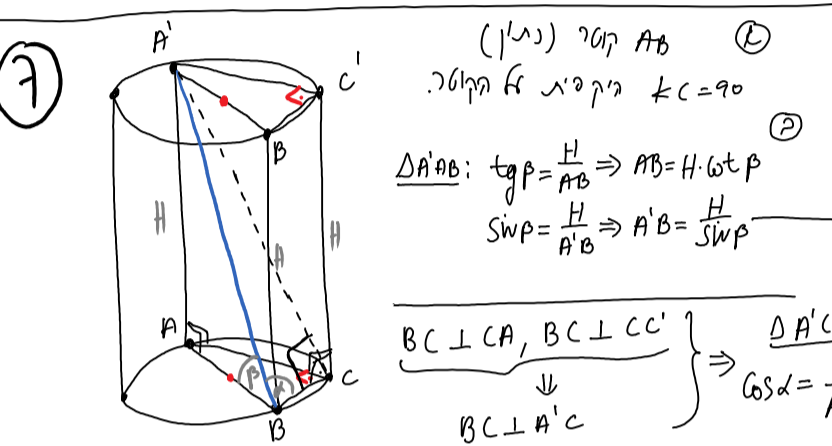 7
A'
C'
B
H
A
H
H
A
β
α
C
B
א
AB קוטר (נתון)
∢C=90 היקפית על הקוטר.
ב
ΔA'AB: tgβ = H/AB ⇒ AB = H·cotβ
sinβ = H/A'B ⇒ A'B = H/sinβ
BC⊥CA, BC⊥CC' } ⇒ ΔA'C
⇓ cosα =
BC⊥A'C